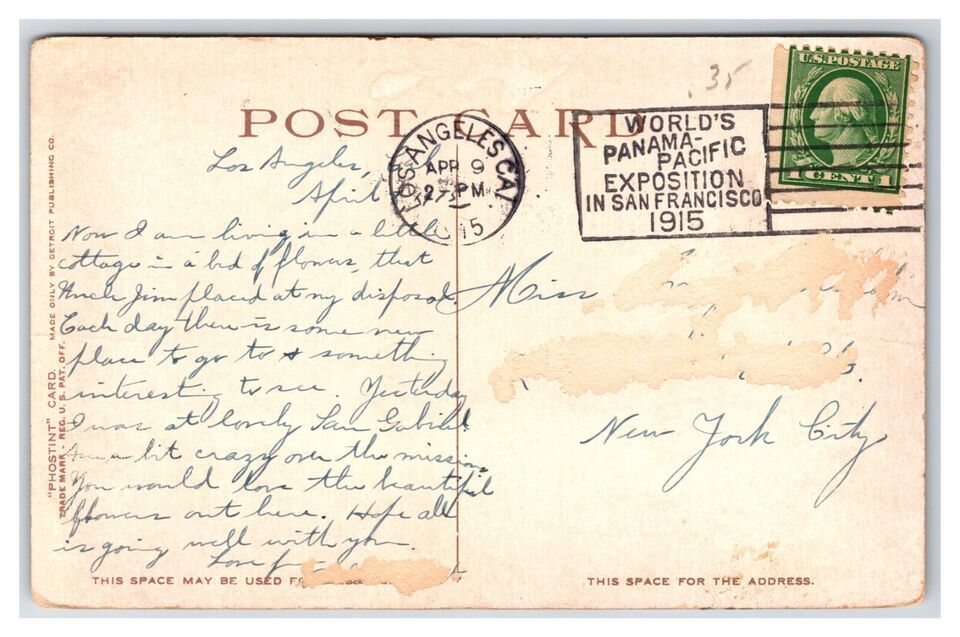 .35
U.S.POSTAGE
1 CENT 1
POST CARD
LOS ANGELES, CAL.
APR 9
2 PM
15
WORLD'S
PANAMA-
PACIFIC
EXPOSITION
IN SAN FRANCISCO
1915
Los Angeles,
April
Now I am living in a little
cottage in a bed of flowers, that
Uncle Jim placed at my disposal.
Each day there is some new
place to go to & something
interesting to see. Yesterday
I was at lovely San Gabriel
Am a bit crazy over the missions
You would love the beautiful
flowers out here. Hope all
is going well with you.
Love
Miss
New York City
"PHOSTINT" CARD. MADE ONLY BY DETROIT PUBLISHING CO.
TRADE MARK - REG. U.S. PAT. OFF.
THIS SPACE MAY BE USED
THIS SPACE FOR THE ADDRESS.